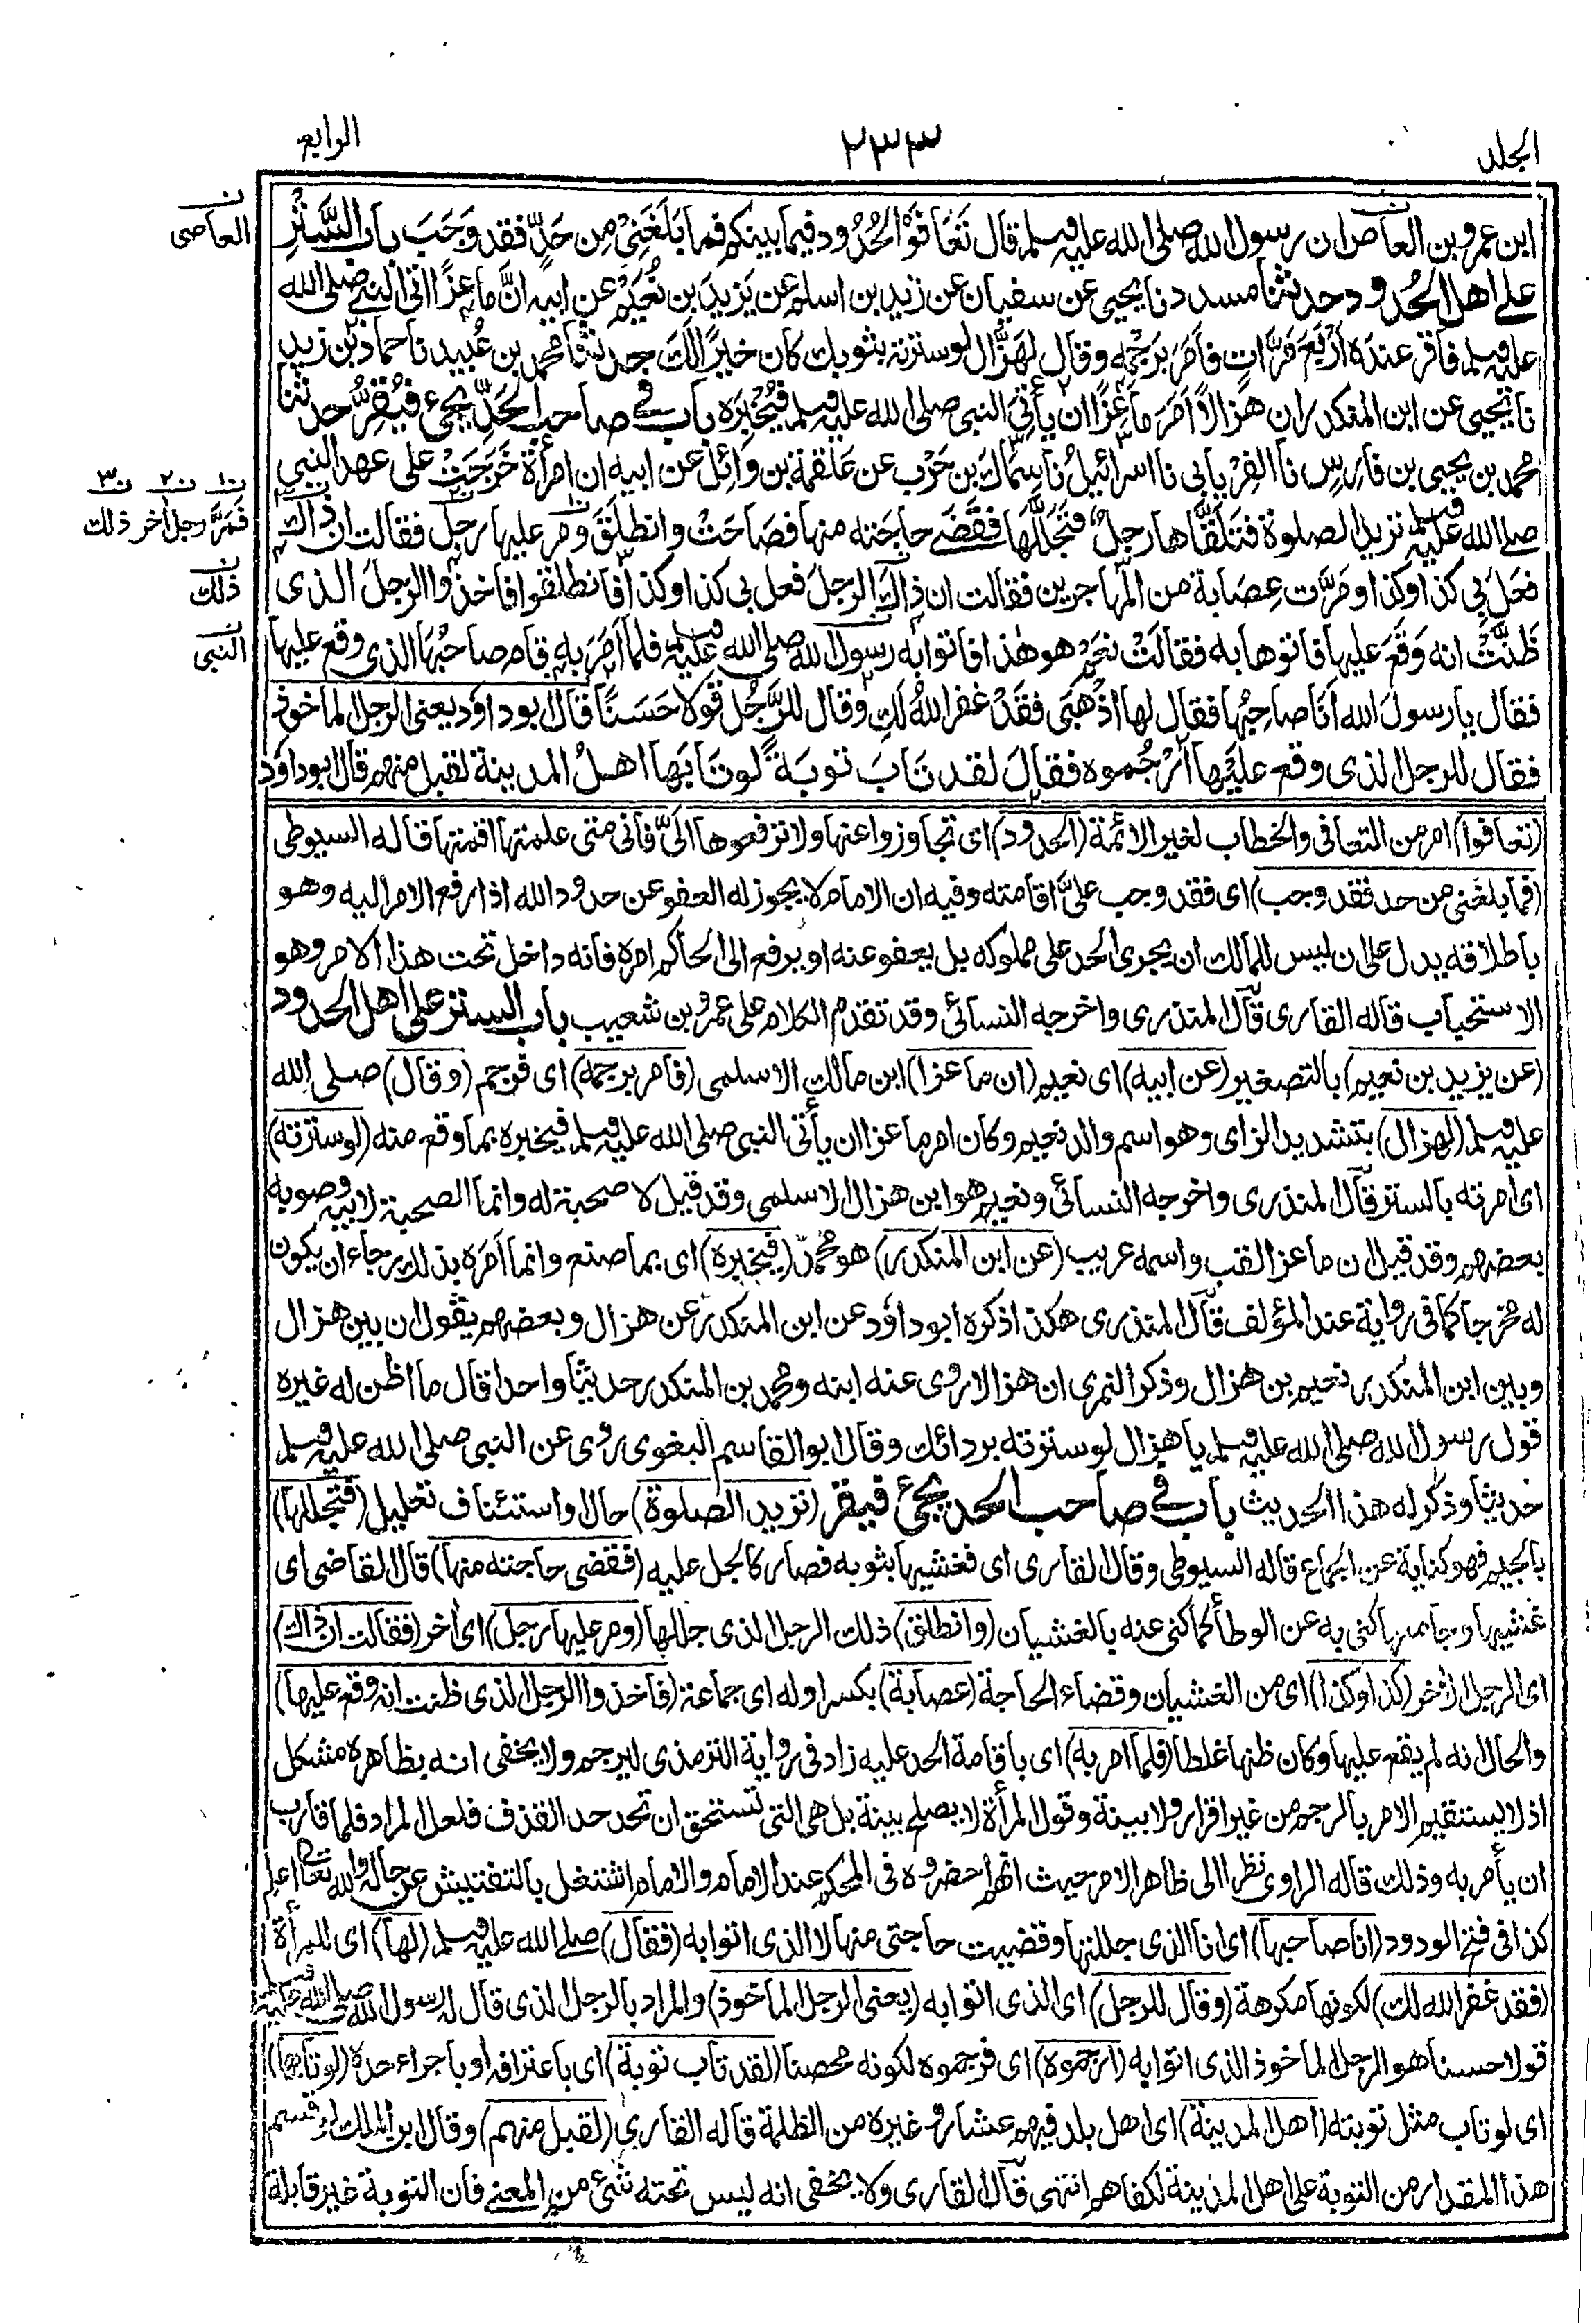 الجلد
٢٣٣
الرابع
ابن عمرو بن العاص ان رسول الله صلى الله عليه وسلم قال تَعَافَوُا الحُدُود فيما بينكم فما بَلَغَنِيْ مِن حَدٍّ فقد وَجَبَ باب السَّتْرِ
على اهل الحُدود حدثنا مسدد نا يحيى عن سفيان عن زيد بن اسلم عن يَزِيدَ بن نُعَيْمٍ عن ابيه انَّ ماعِزًا اتى النبى صلى الله
عليه وسلم فاقر عنده اَرْبَعَ مَرَّاتٍ فأمَرَ بِرَجْمِه وقال لِهَزَّالٍ لوسترته بثوبك كان خيرًا لك حدثنا محمد بن عُبيد نا حماد بن زيد
نا يحيى عن ابن المنكدر ان هزالا اَمَرَ مَاعِزًا ان يأتِيَ النبى صلى الله عليه وسلم فيُخْبِرَه باب فى صاحب الحَدِّ يجىء فيُقِرُّ حدثنا
محمد بن يحيى بن فارِسٍ نا الفِرْيابى نا اسرائيلُ نا سِمَاك بن حَرْب عن عَلقمة بن وَائِل عن ابيه ان امرأة خَرَجَتْ على عهد النبى
صلى الله عليه وسلم تريد الصلوة فتَلَقَّاها رجلٌ فتَجَلَّلَها فقَضَى حاجته منها فصَاحَتْ وانطلَقَ ومر عليها رجل فقالت ان ذاك
فعَلَ بى كذا وكذا ومَرَّت عِصَابة من المهاجرين فقالت ان ذاك الرجلَ فعل بى كذا وكذا فانطلقوا فاخذوا الرجلَ الذى
ظَنَّتْ انه وَقَعَ عليها فاتوها به فقالَتْ نعَمْ هو هٰذا فاتوا به رسول الله صلى الله عليه وسلم فلما اَمَرَ به قام صاحبُها الذى وقع عليها
فقال يا رسولَ الله اَنَا صاحِبُها فقال لها اذْهَبِى فقَدْ غفر اللهُ لَكِ وقال للرَّجُل قولا حَسَنًا قال ابوداود يعنى الرجل الماخوذ
فقال للرجل الذى وقع عليها ارْجُموه فقالَ لقد تَابَ توبَةً لو تَابَها اهلُ المدينة لقبل منهم قال ابوداود
(تعافوا) امر من التعافى والخطاب لغير الائمة (الحدود) اى تجاوزوا عنها ولا ترفعوها الىّ فانى متى علمتها اقمتها قاله السيوطى
(فما بلغنى من حد فقد وجب) اى فقد وجب علىّ اقامته وفيه ان الامام لا يجوز له العفو عن حدود الله اذا رفع الامر اليه وهو
باطلاقه يدل على ان ليس للمالك ان يجرى الحد على مملوكه بل يعفو عنه او يرفع الى الحاكم امره فانه داخل تحت هذا الامر وهو
الاستحباب قاله القارى قال المنذرى واخرجه النسائى وقد تقدم الكلام على عمرو بن شعيب باب الستر على اهل الحدود
(عن يزيد بن نعيم) بالتصغير (عن ابيه) اى نعيم (ان ماعزا) ابن مالك الاسلمى (فامر برجمه) اى فرجم (وقال) صلى الله
عليه وسلم (لهزال) بتشديد الزاى وهو اسم والد نعيم وكان امر ماعزا ان يأتى النبى صلى الله عليه وسلم فيخبره بما وقع منه (لوسترته)
اى امرته بالستر قال المنذرى واخرجه النسائى ونعيم هو ابن هزال الاسلمى وقد قيل لا صحبة له وانما الصحبة لابيه وصوبه
بعضهم وقد قيل ان ماعزا لقب واسمه عريب (عن ابن المنكدر) هو محمد (فيخبره) اى بما صنع وانما اَمَرَه بذلك رجاء ان يكون
له مخرجا كما فى رواية عند المؤلف قال المنذرى هكذا ذكره ابوداود عن ابن المنكدر عن هزال وبعضهم يقول ان بين هزال
وبين ابن المنكدر نعيم بن هزال وذكر النمرى ان هزالا روى عنه ابنه ومحمد بن المنكدر حديثا واحدا قال ما اظن له غيره
قول رسول الله صلى الله عليه وسلم يا هزال لوسترته بردائك وقال ابو القاسم البغوى روى عن النبى صلى الله عليه وسلم
حديثا وذكر له هذا الحديث باب فى صاحب الحد يجئ فيقر (تريد الصلوة) حال او استئناف تعليل (فتجللها)
بالجيم فهو كناية عن الجماع قاله السيوطى وقال القارى اى فغشيها بثوبه فصار كالجل عليه (فقضى حاجته منها) قال القاضى اى
غشيها وجامعها كنى به عن الوطأ كما كنى عنه بالغشيان (وانطلق) ذلك الرجل الذى جللها (ومر عليها رجل) اى اٰخر (فقالت ان ذاك)
اى الرجل الاٰخر (كذا وكذا) اى من الغشيان وقضاء الحاجة (عصابة) بكسر اوله اى جماعة (فاخذوا الرجل الذى ظنت انه وقع عليها)
والحال انه لم يقع عليها وكان ظنها غلطا (فلما امر به) اى باقامة الحد عليه زاد فى رواية الترمذى ليرجم ولا يخفى انه بظاهره مشكل
اذ لا يستقيم الامر بالرجم من غير اقرار ولا بينة وقول المرأة لا يصلح بينة بل هى التى تستحق ان تحد حد القذف فلعل المراد فلما قارب
ان يأمر به وذلك قاله الراوى نظرا الى ظاهر الامر حيث انهم احضروه فى المحكم عند الامام والامام اشتغل بالتفتيش عن حاله والله تعالى اعلم
كذا فى فتح الودود (انا صاحبها) اى انا الذى جللتها وقضيت حاجتى منها لا الذى اتوا به (فقال) صلى الله عليه وسلم (لها) اى للمرأة
(فقد غفر الله لك) لكونها مكرهة (وقال للرجل) اى الذى اتوا به (يعنى الرجل الماخوذ) والمراد بالرجل الذى قال له رسول الله صلى الله عليه وسلم
قولا حسنا هو الرجل الماخوذ الذى اتوا به (ارجموه) اى فرجموه لكونه محصنا (لقد تاب توبة) اى باعترافه او باجراء حده (لو تابها)
اى لو تاب مثل توبته (اهل المدينة) اى اهل بلد فيهم عشار وغيره من الظلمة قاله القارى (لقبل منهم) وقال ابن الملك لو قسم
هذا المقدار من التوبة على اهل المدينة لكفاهم انتهى قال القارى ولا يخفى انه ليس تحته شئ من المعنى فان التوبة غير قابلة
ن
العاصى
ن١ ن٢ ن٣
فَمَرَّ رجل اٰخر ذلك
ن
ذلك
ن
النبى